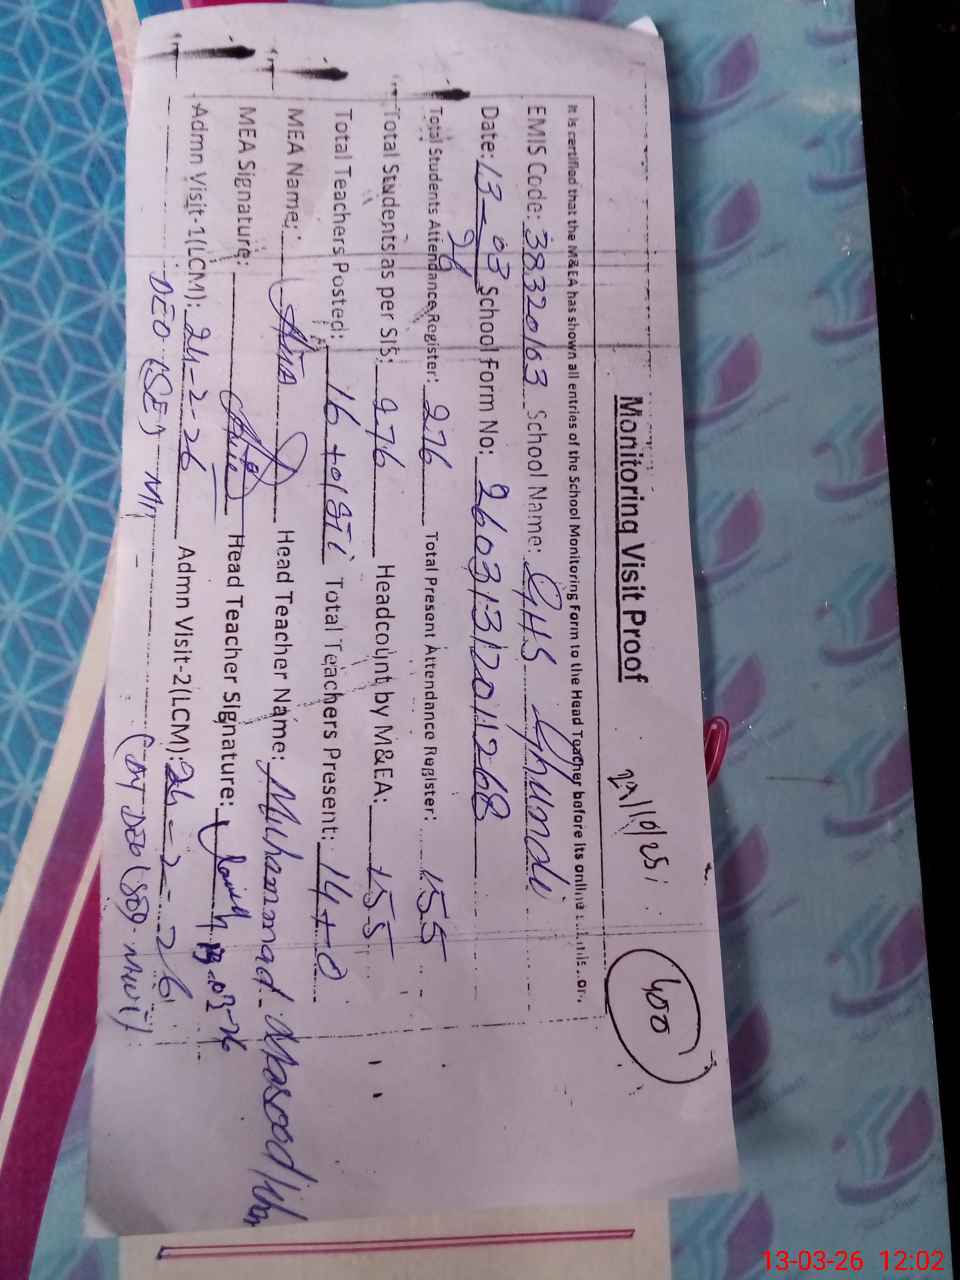 Monitoring Visit Proof
22/10/25
400
It is certified that the M&EA has shown all entries of the School Monitoring Form to the Head Teacher before its online
EMIS Code: 38320163 School Name: GHS Ghundi
Date: 13-03 26 School Form No: 2603131201268
Total Students Attendance Register: 276 Total Present Attendance Register: 155
Total Students as per SIS: 276 Headcount by M&EA: 155
Total Teachers Posted: 16 + 01 STI Total Teachers Present: 14 + 0
MEA Name: Head Teacher Name: Muhammad Masood
MEA Signature: Head Teacher Signature: 13.03-26
Admn Visit-1(LCM): 24-2-26 Admn Visit-2(LCM): 26-2-26
DEO (SE) MI (DY DEO
13-03-26 12:02